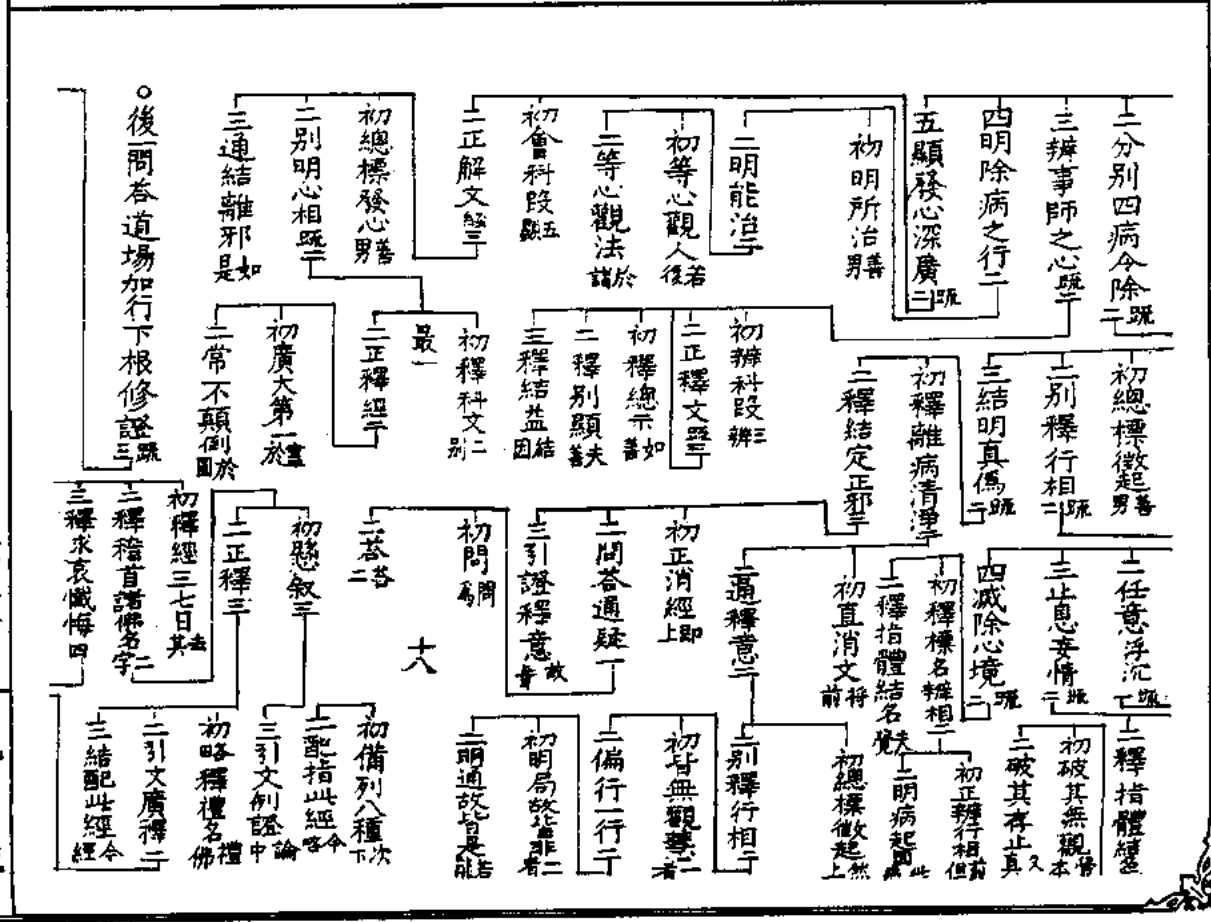 二分別四病令除疏二
三辨事師之心疏二
四明除病之行二
五顯發心深廣疏二
初明所治善男
二明能治二
初等心觀人若後
二等心觀法於諸
初會科段五顯
二正解文經三
初總標發心善男
二別明心相疏二
三通結離邪如是
○後一問答道場加行下根修證疏三
初總標徵起善男
二別釋行相疏二
三結明真偽疏二
初釋離病清淨二
二釋結定正邪三
初辨科段三辨
二正釋文疏三
初釋總示如善
二釋別顯夫善
三釋結益結因
初釋科文二別
最一
二正釋經二
初廣大第一
二常不顛倒於圓
二任意浮沉疏二
三止息妄情疏二
四滅除心境疏二
初釋標名辨相二
二釋指體結名夫覺
初直消文將前
二通釋意二
初正消經即上
二問答通疑一
三引證釋意故
初問問為
二答答二
十八
初懸敘三
二正釋三
初釋經三七日去其
二釋稽首諸佛名字二
三釋求哀懺悔四
二釋指體
初破其無觀修本
二破其存止又真
初正辨行相前但
二明病起因
初總標徵起然上
二別釋行相二
初皆無觀慧二者
二偏行一行二
初明局故皆非二者
二明通故皆是若能
初備列八種次下
二配指此經今略
三引文例證論中
初略釋禮名禮佛
二引文廣釋二
三結配此經今經